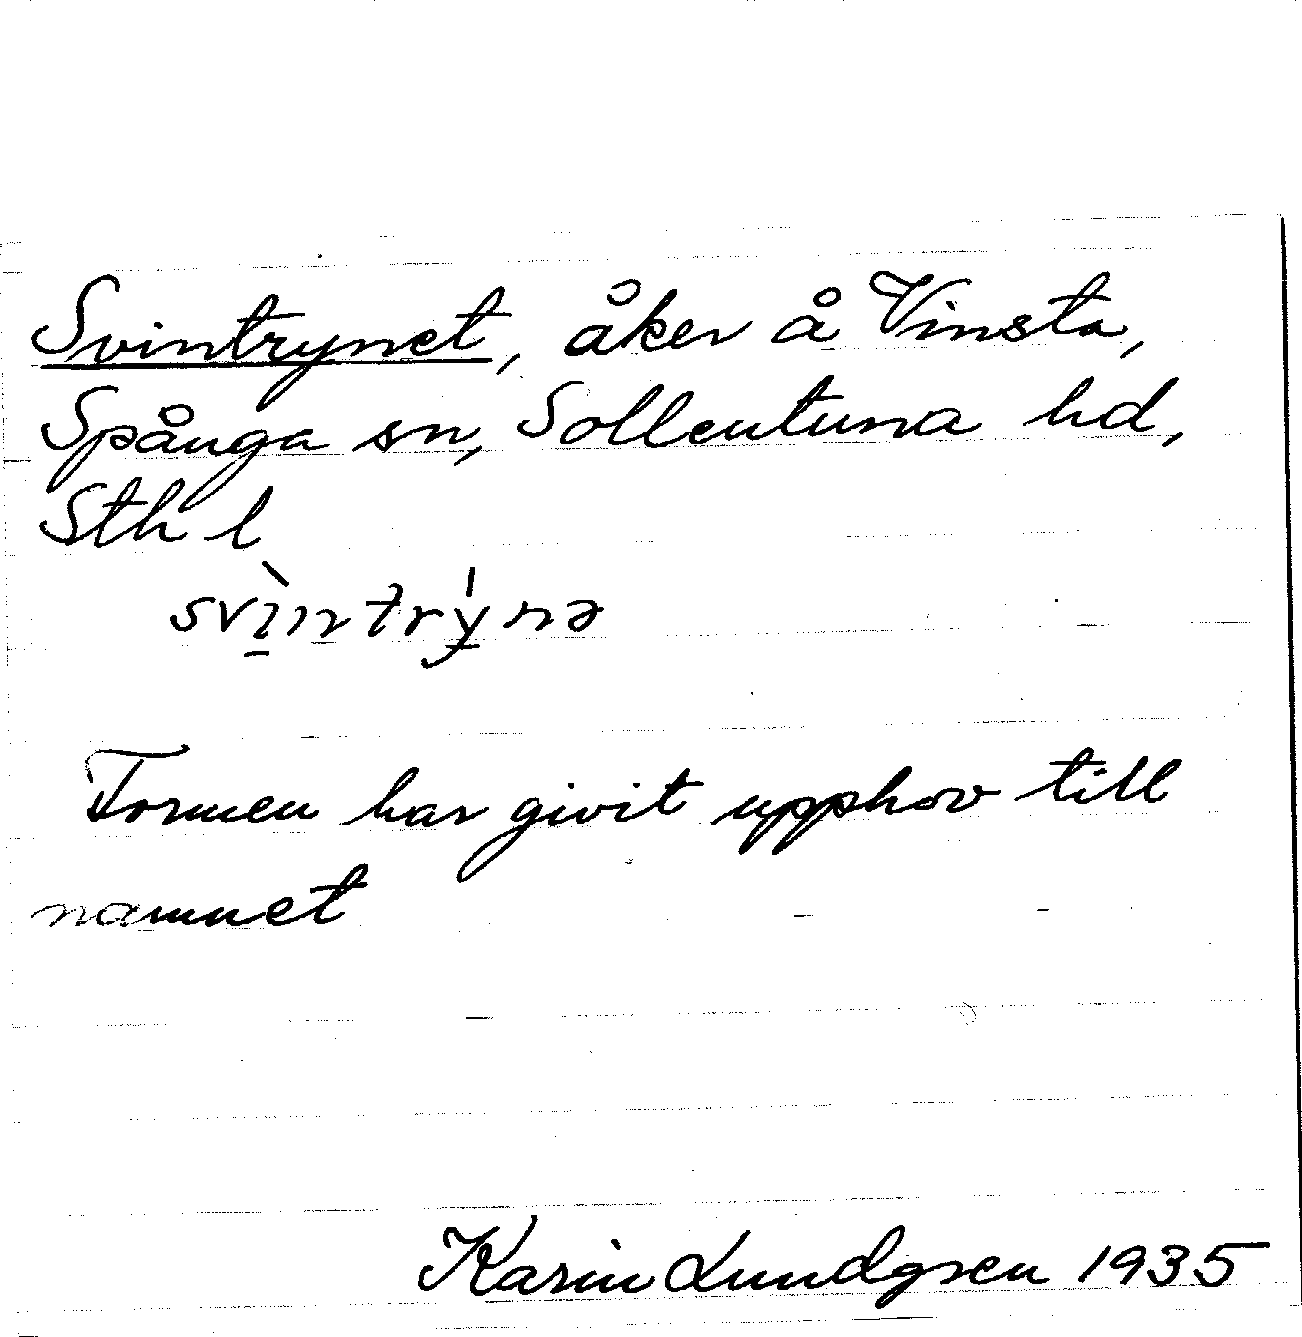 Svintrynet, åker å Vinsta,
Spånga sn, Sollentuna hd,
Sth l
svì̠ntrý̠nə
Formen har givit upphov till
namnet
Karin Lundgren 1935